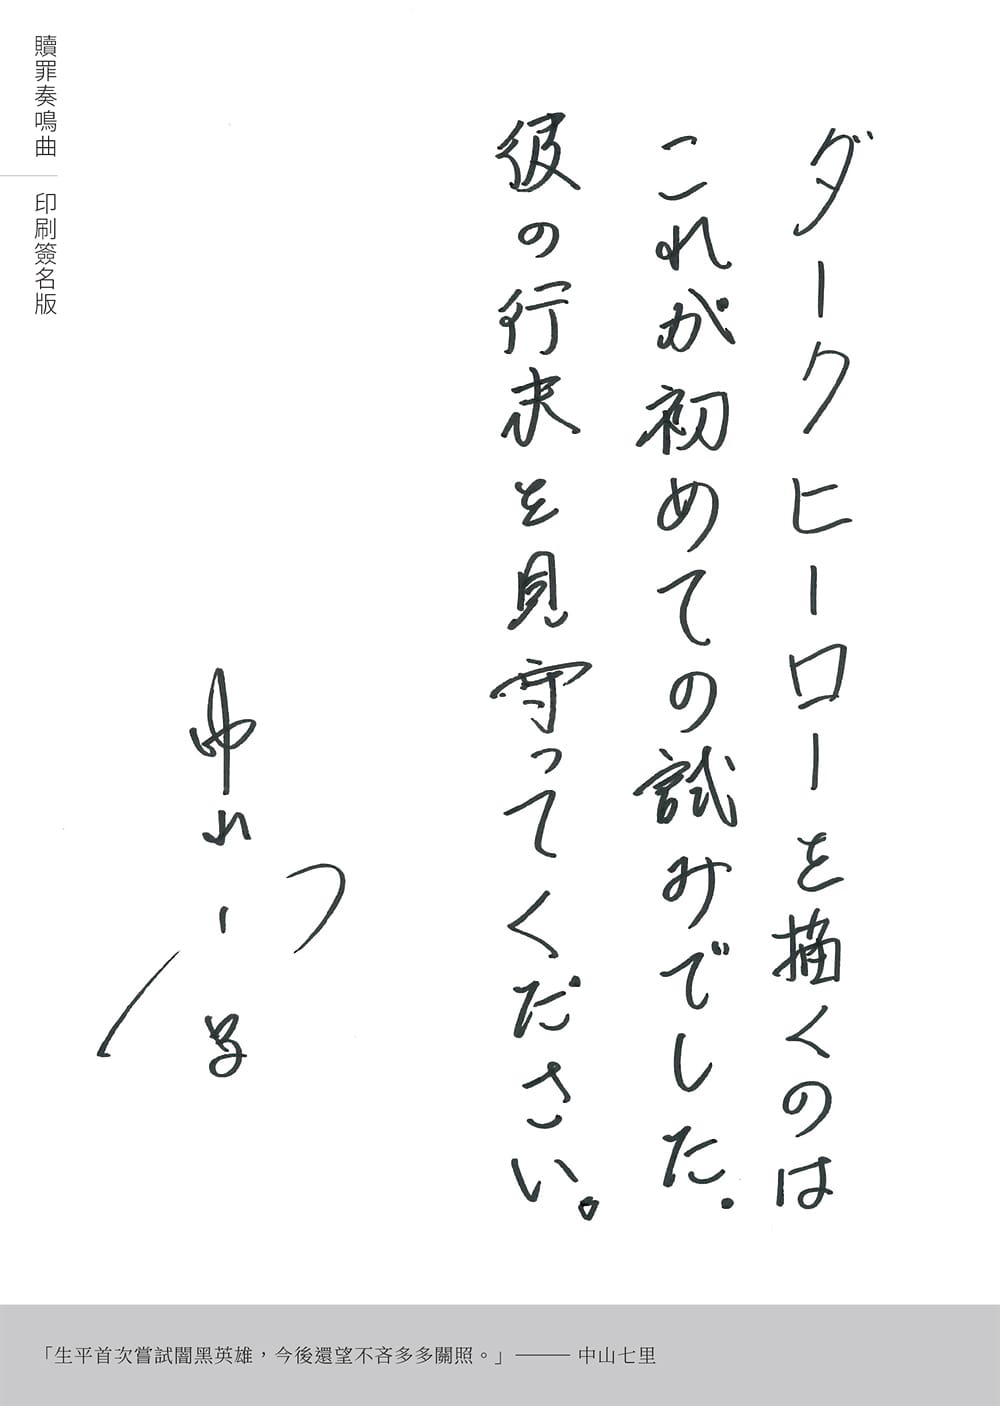 贖罪奏鳴曲
印刷簽名版
ダークヒーローを描くのは
これが初めての試みでした.
彼の行末を見守ってください。
「生平首次嘗試闇黑英雄，今後還望不吝多多關照。」——— 中山七里